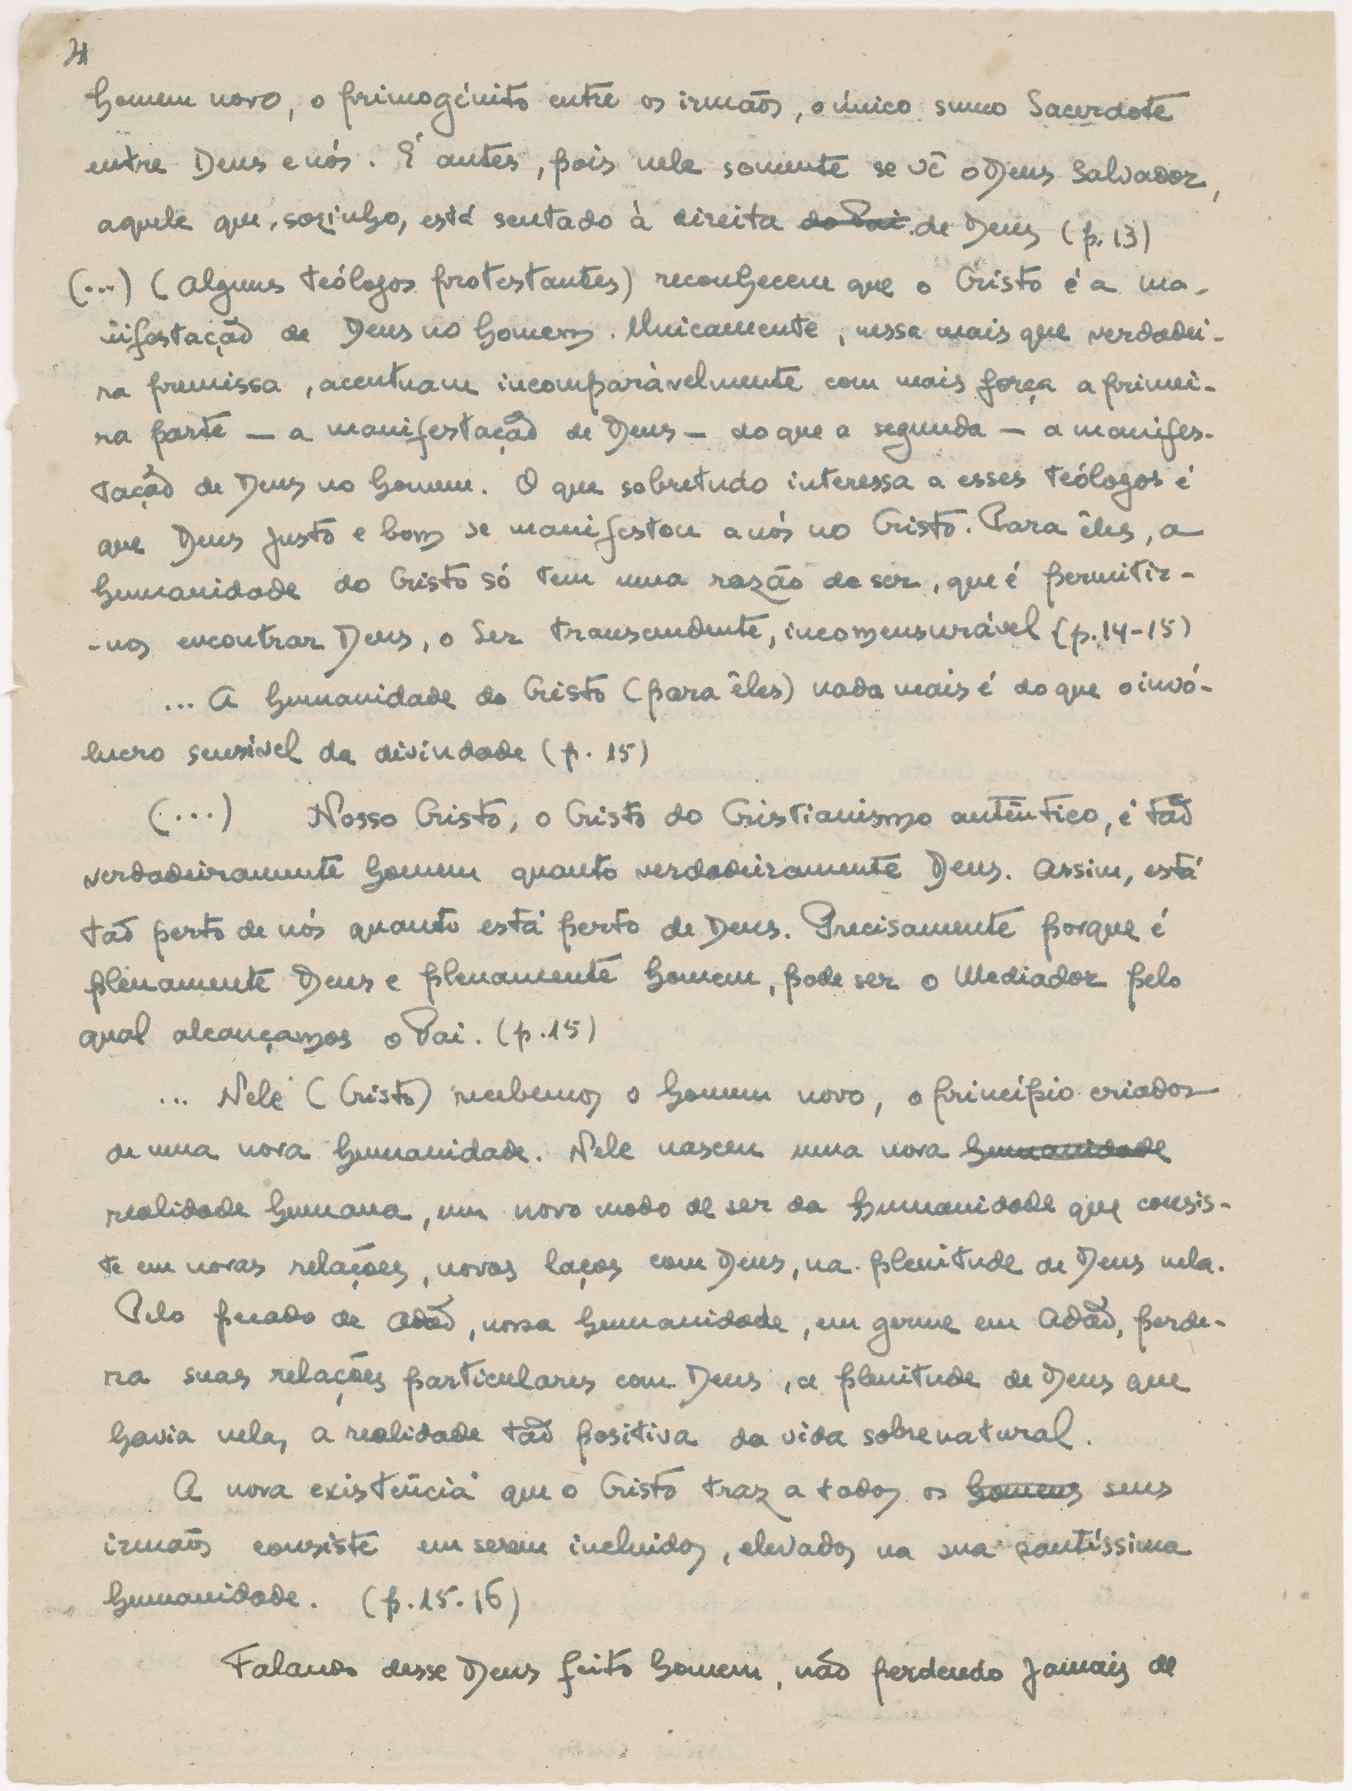 4
homem novo, o primogénito entre os irmãos, o único sumo Sacerdote
entre Deus e nós. É antes, pois nele somente se vê o Deus Salvador,
aquele que, sozinho, está sentado à direita do Pai de Deus (p.13)
(...) (Alguns teólogos protestantes) reconhecem que o Cristo é a ma-
nifestação de Deus no homem. Unicamente, nessa mais que verdadei-
ra premissa, acentuam incomparàvelmente com mais força a primei-
ra parte — a manifestação de Deus — do que a segunda — a manifes-
tação de Deus no homem. O que sobretudo interessa a esses teólogos é
que Deus justo e bom se manifestou a nós no Cristo. Para êles, a
humanidade do Cristo só tem uma razão de ser, que é permitir-
-nos encontrar Deus, o Ser transcendente, incomensurável (p.14-15)
... A humanidade do Cristo (para êles) nada mais é do que o invó-
lucro sensível da divindade (p. 15)
(...) Nosso Cristo, o Cristo do Cristianismo autêntico, é tão
verdadeiramente homem quanto verdadeiramente Deus. Assim, está
tão perto de nós quanto está perto de Deus. Precisamente porque é
plenamente Deus e plenamente homem, pode ser o Mediador pelo
qual alcançamos o Pai. (p.15)
... Nele (Cristo) recebemos o homem novo, o princípio criador
de uma nova humanidade. Nele nasceu uma nova humanidade
realidade humana, um novo modo de ser da humanidade que consis-
te em novas relações, novos laços com Deus, na plenitude de Deus nela.
Pelo pecado de Adão, nossa humanidade, em germe em Adão, perde-
ra suas relações particulares com Deus, a plenitude de Deus que
havia nela, a realidade tão positiva da vida sobrenatural.
A nova existência que o Cristo traz a todos os homens seus
irmãos consiste em serem incluidos, elevados na sua santíssima
humanidade. (p.15.16)
Falando desse Deus feito homem, não perdendo jamais de